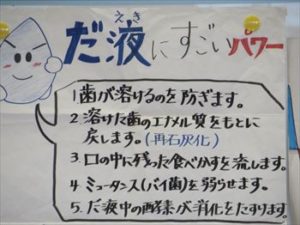 だ液にすごいパワー
えき
1 歯が溶けるのを防ぎます。
2. 溶けた歯のエナメル質をもとに
戻します。(再石灰化)
3. 口の中に残った食べかすを流します。
4 ミュータンス(バイ菌)を弱らせます。
5. だ液中の酵素が消化をたすけます。